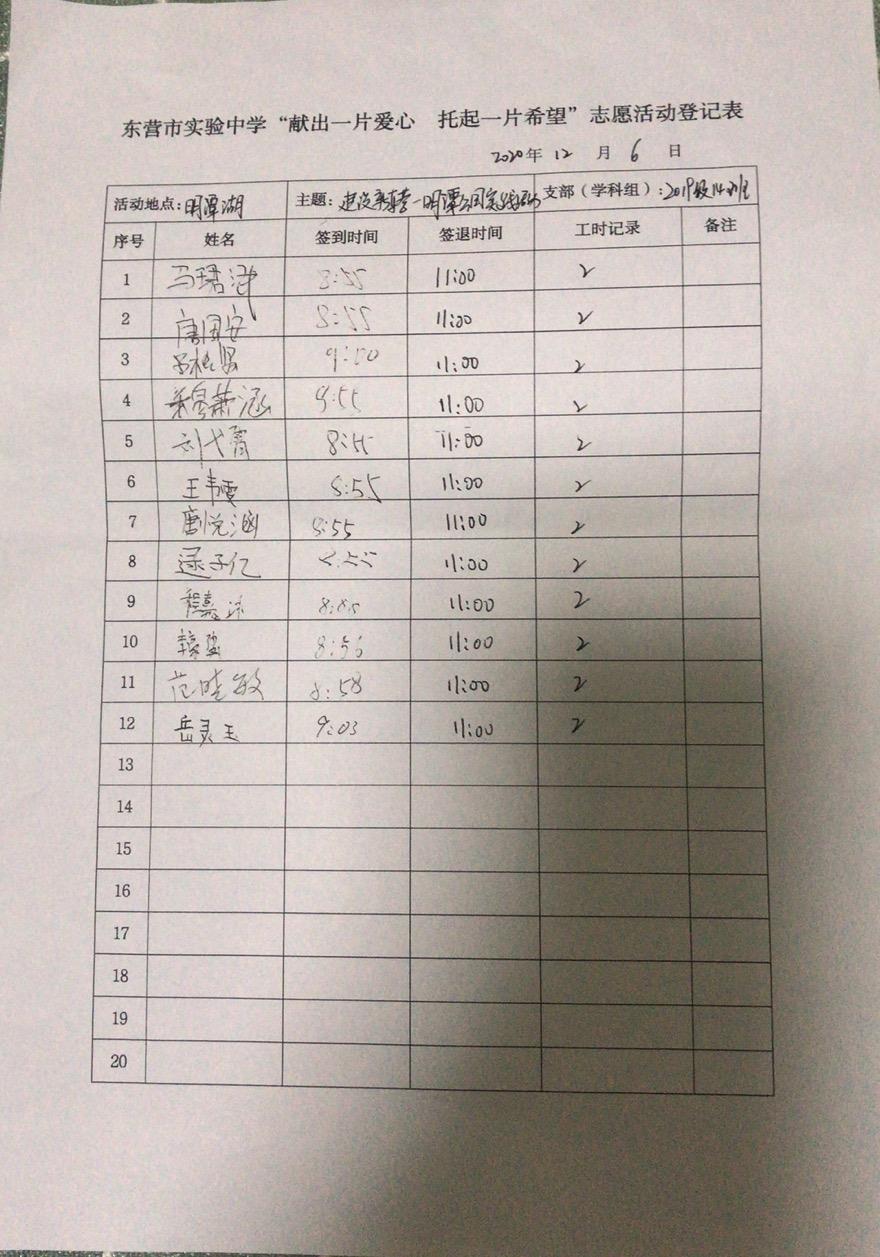 东营市实验中学“献出一片爱心 托起一片希望”志愿活动登记表
2020年 12 月 6 日
活动地点:明潭湖 主题: 支部(学科组):2019级14班
序号 姓名 签到时间 签退时间 工时记录 备注
1 8:55 11:00 2
2 唐国安 8:55 11:00 2
3 9:00 11:00 2
4 11:00 2
5 8:55 11:00 2
6 王韦雯 8:55 11:00 2
7 唐悦涵 8:55 11:00 2
8 逯子亿 8:55 11:00 2
9 11:00 2
10 8:56 11:00 2
11 范晓敏 8:58 11:00 2
12 岳灵玉 9:03 11:00 2
13
14
15
16
17
18
19
20